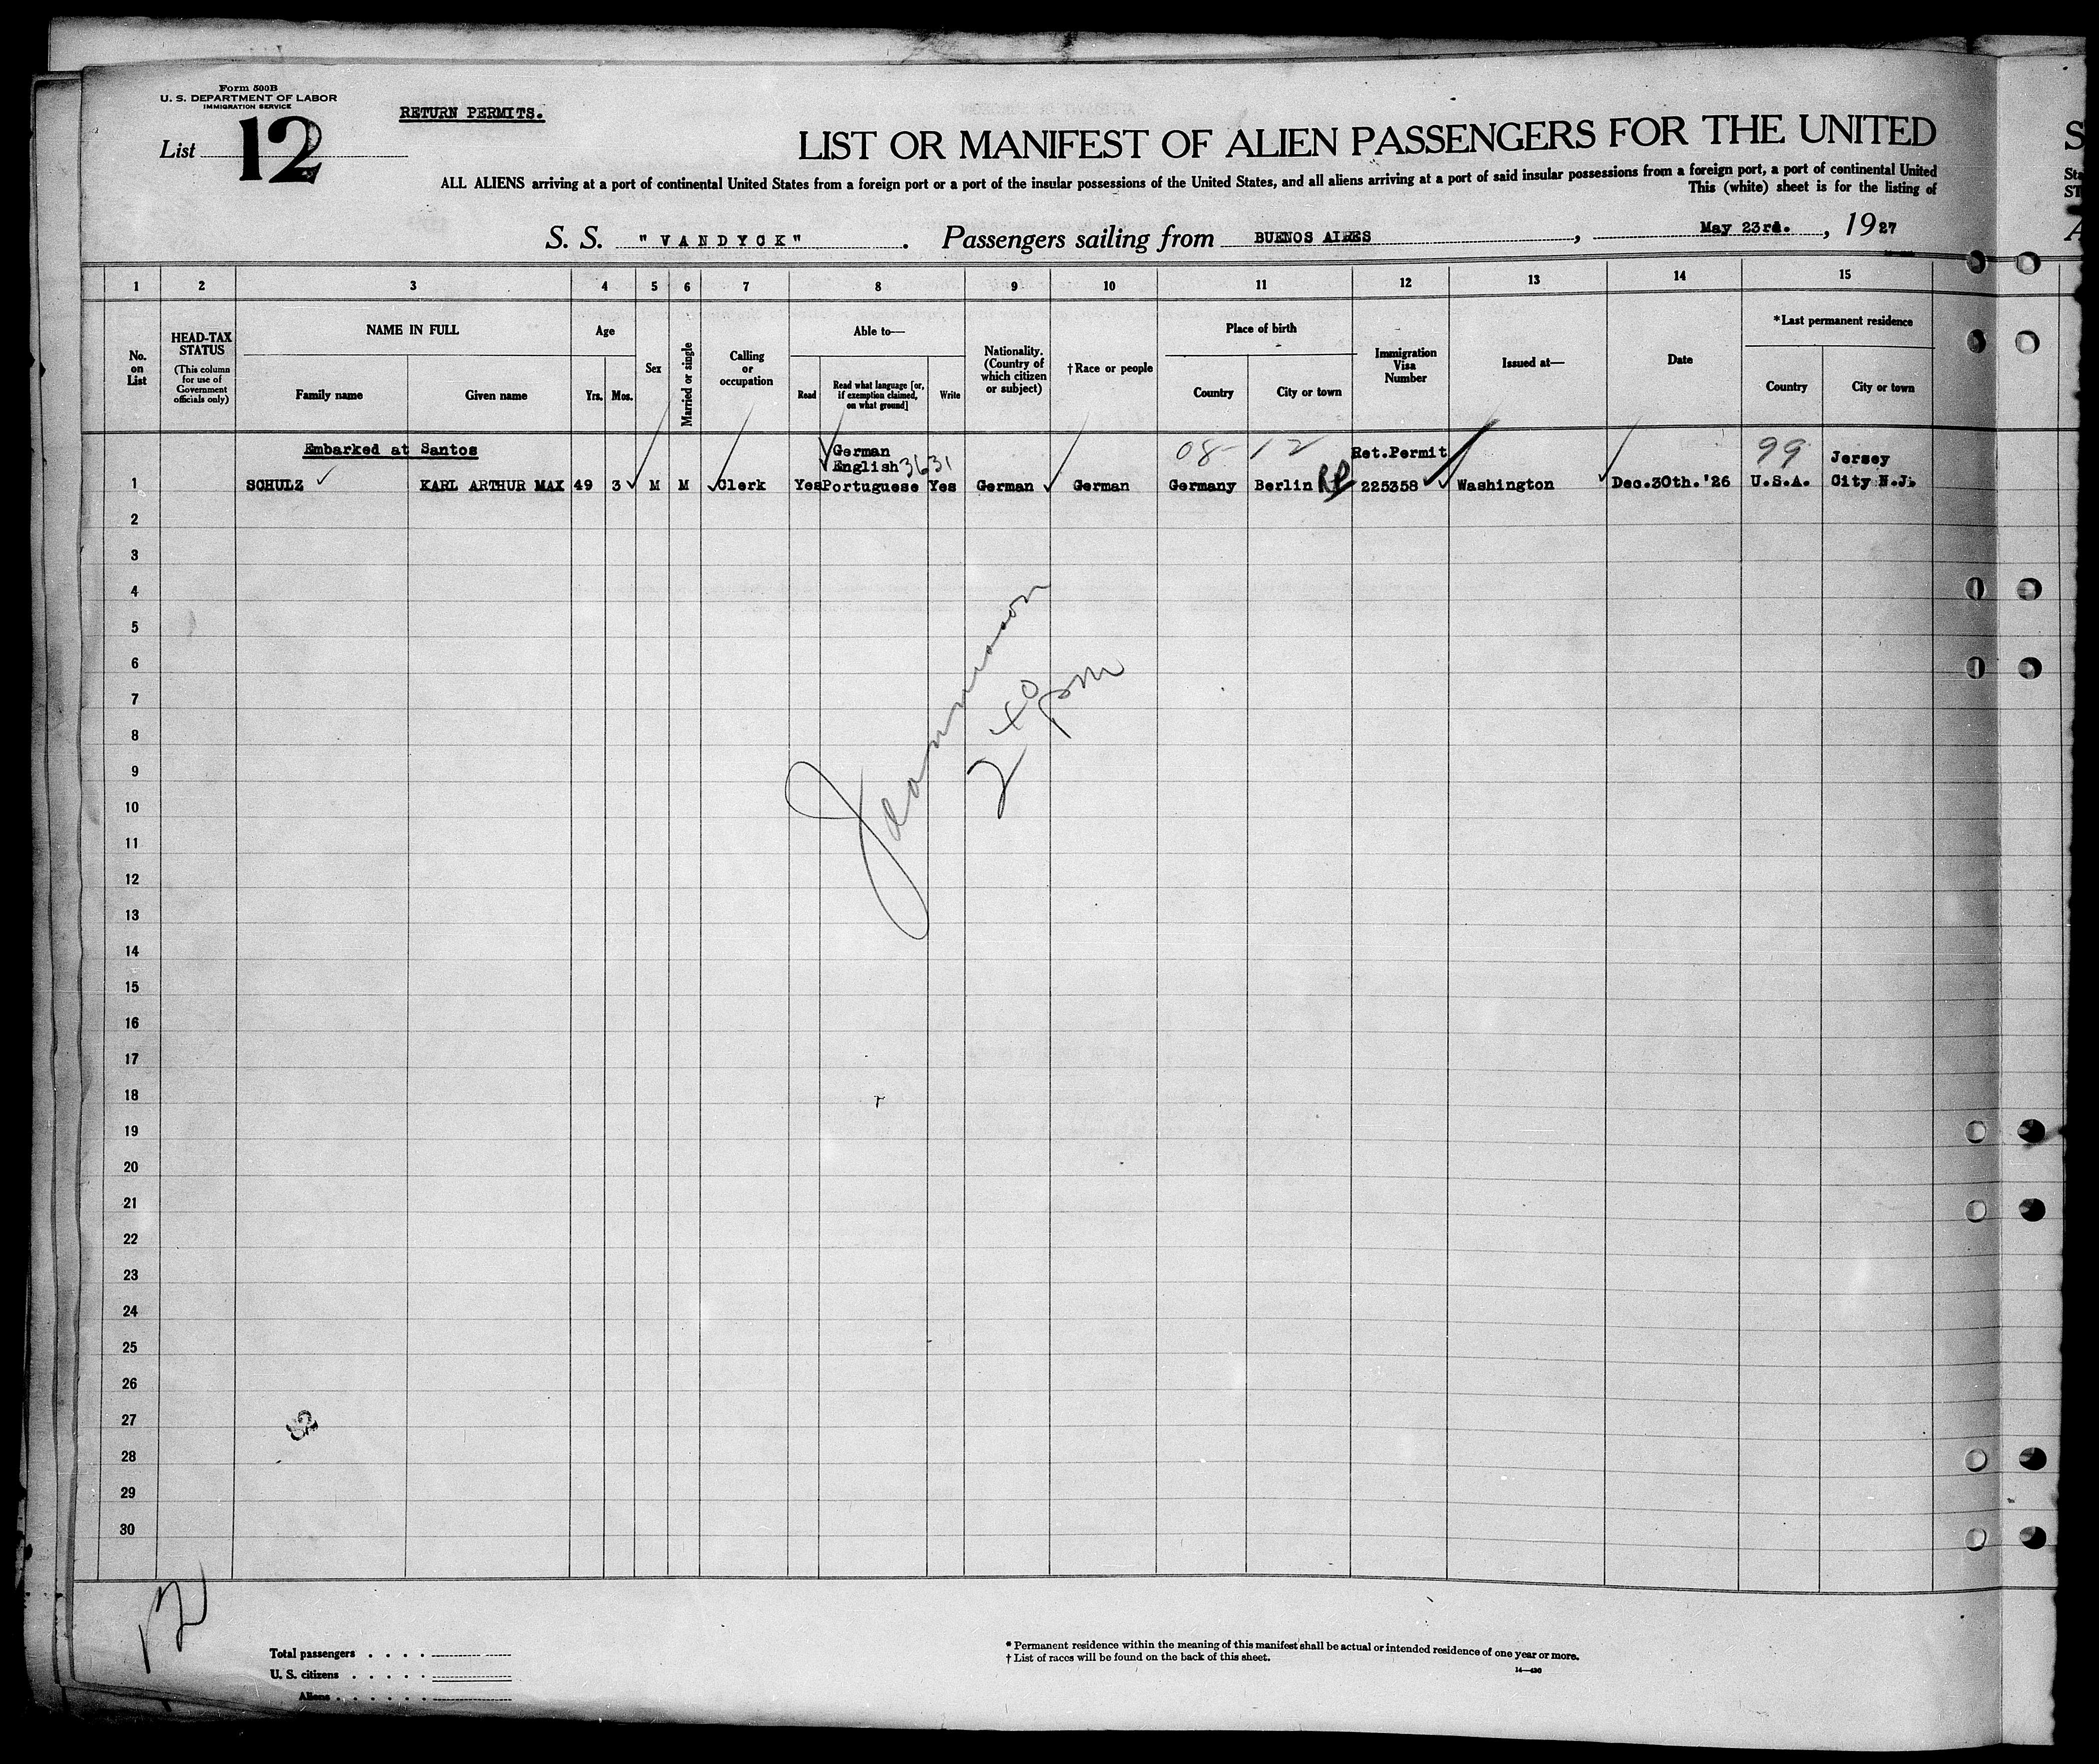 Form 500B
U. S. DEPARTMENT OF LABOR
IMMIGRATION SERVICE
RETURN PERMITS.
List 12
LIST OR MANIFEST OF ALIEN PASSENGERS FOR THE UNITED
ALL ALIENS arriving at a port of continental United States from a foreign port or a port of the insular possessions of the United States, and all aliens arriving at a port of said insular possessions from a foreign port, a port of continental United
This (white) sheet is for the listing of
S. S. "VANDYCK". Passengers sailing from BUENOS AIRES, May 23rd., 1927
1 2 3 4 5 6 7 8 9 10 11 12 13 14 15
No. on List
HEAD-TAX STATUS
(This column for use of Government officials only)
NAME IN FULL
Family name
Given name
Age
Yrs. Mos.
Sex
Married or single
Calling or occupation
Able to—
Read
Read what language [or, if exemption claimed, on what ground]
Write
Nationality. (Country of which citizen or subject)
†Race or people
Place of birth
Country
City or town
Immigration Visa Number
Issued at—
Date
*Last permanent residence
Country
City or town
Embarked at Santos
German 08-12 Ret.Permit 99 Jersey
English 3631
1 SCHULZ KARL ARTHUR MAX 49 3 M M Clerk Yes Portuguese Yes German German Germany Berlin RP 225358 Washington Dec.30th.'26 U.S.A. City N.J.
2
3
4
5
6
7
8
9
10
11
12
13
14
15
16
17
18
19
20
21
22
23
24
25
26
27
28
29
30
2 40 pm
12
Total passengers
U. S. citizens
Aliens
* Permanent residence within the meaning of this manifest shall be actual or intended residence of one year or more.
† List of races will be found on the back of this sheet.
14—430